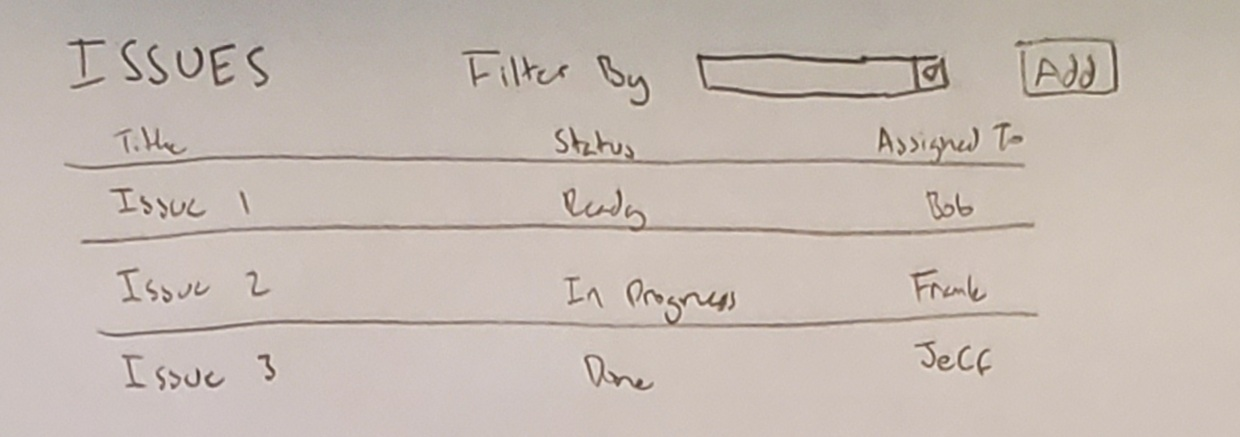 ISSUES Filter By Add
Title Status Assigned To
Issue 1 Ready Bob
Issue 2 In Progress Frank
Issue 3 Done Jeff